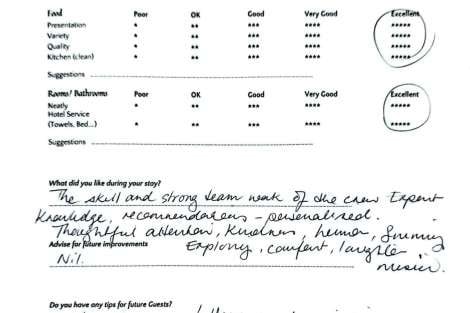 Food Poor OK Good Very Good Excellent
Presentation * ** *** **** *****
Variety * ** *** **** *****
Quality * ** *** **** *****
Kitchen (clean) * ** *** **** *****
Suggestions
Rooms/ Bathrooms Poor OK Good Very Good Excellent
Neatly * ** *** **** *****
Hotel Service
(Towels, Bed...) * ** *** **** *****
Suggestions
What did you like during your stay?
The skill and strong team work of the crew Expert
Knowledge, recommendations - personalised.
Thoughtful attention, Kindness, humor,
Advise for future improvements Exploring, comfort, laughter,
Nil. music.
Do you have any tips for future Guests?